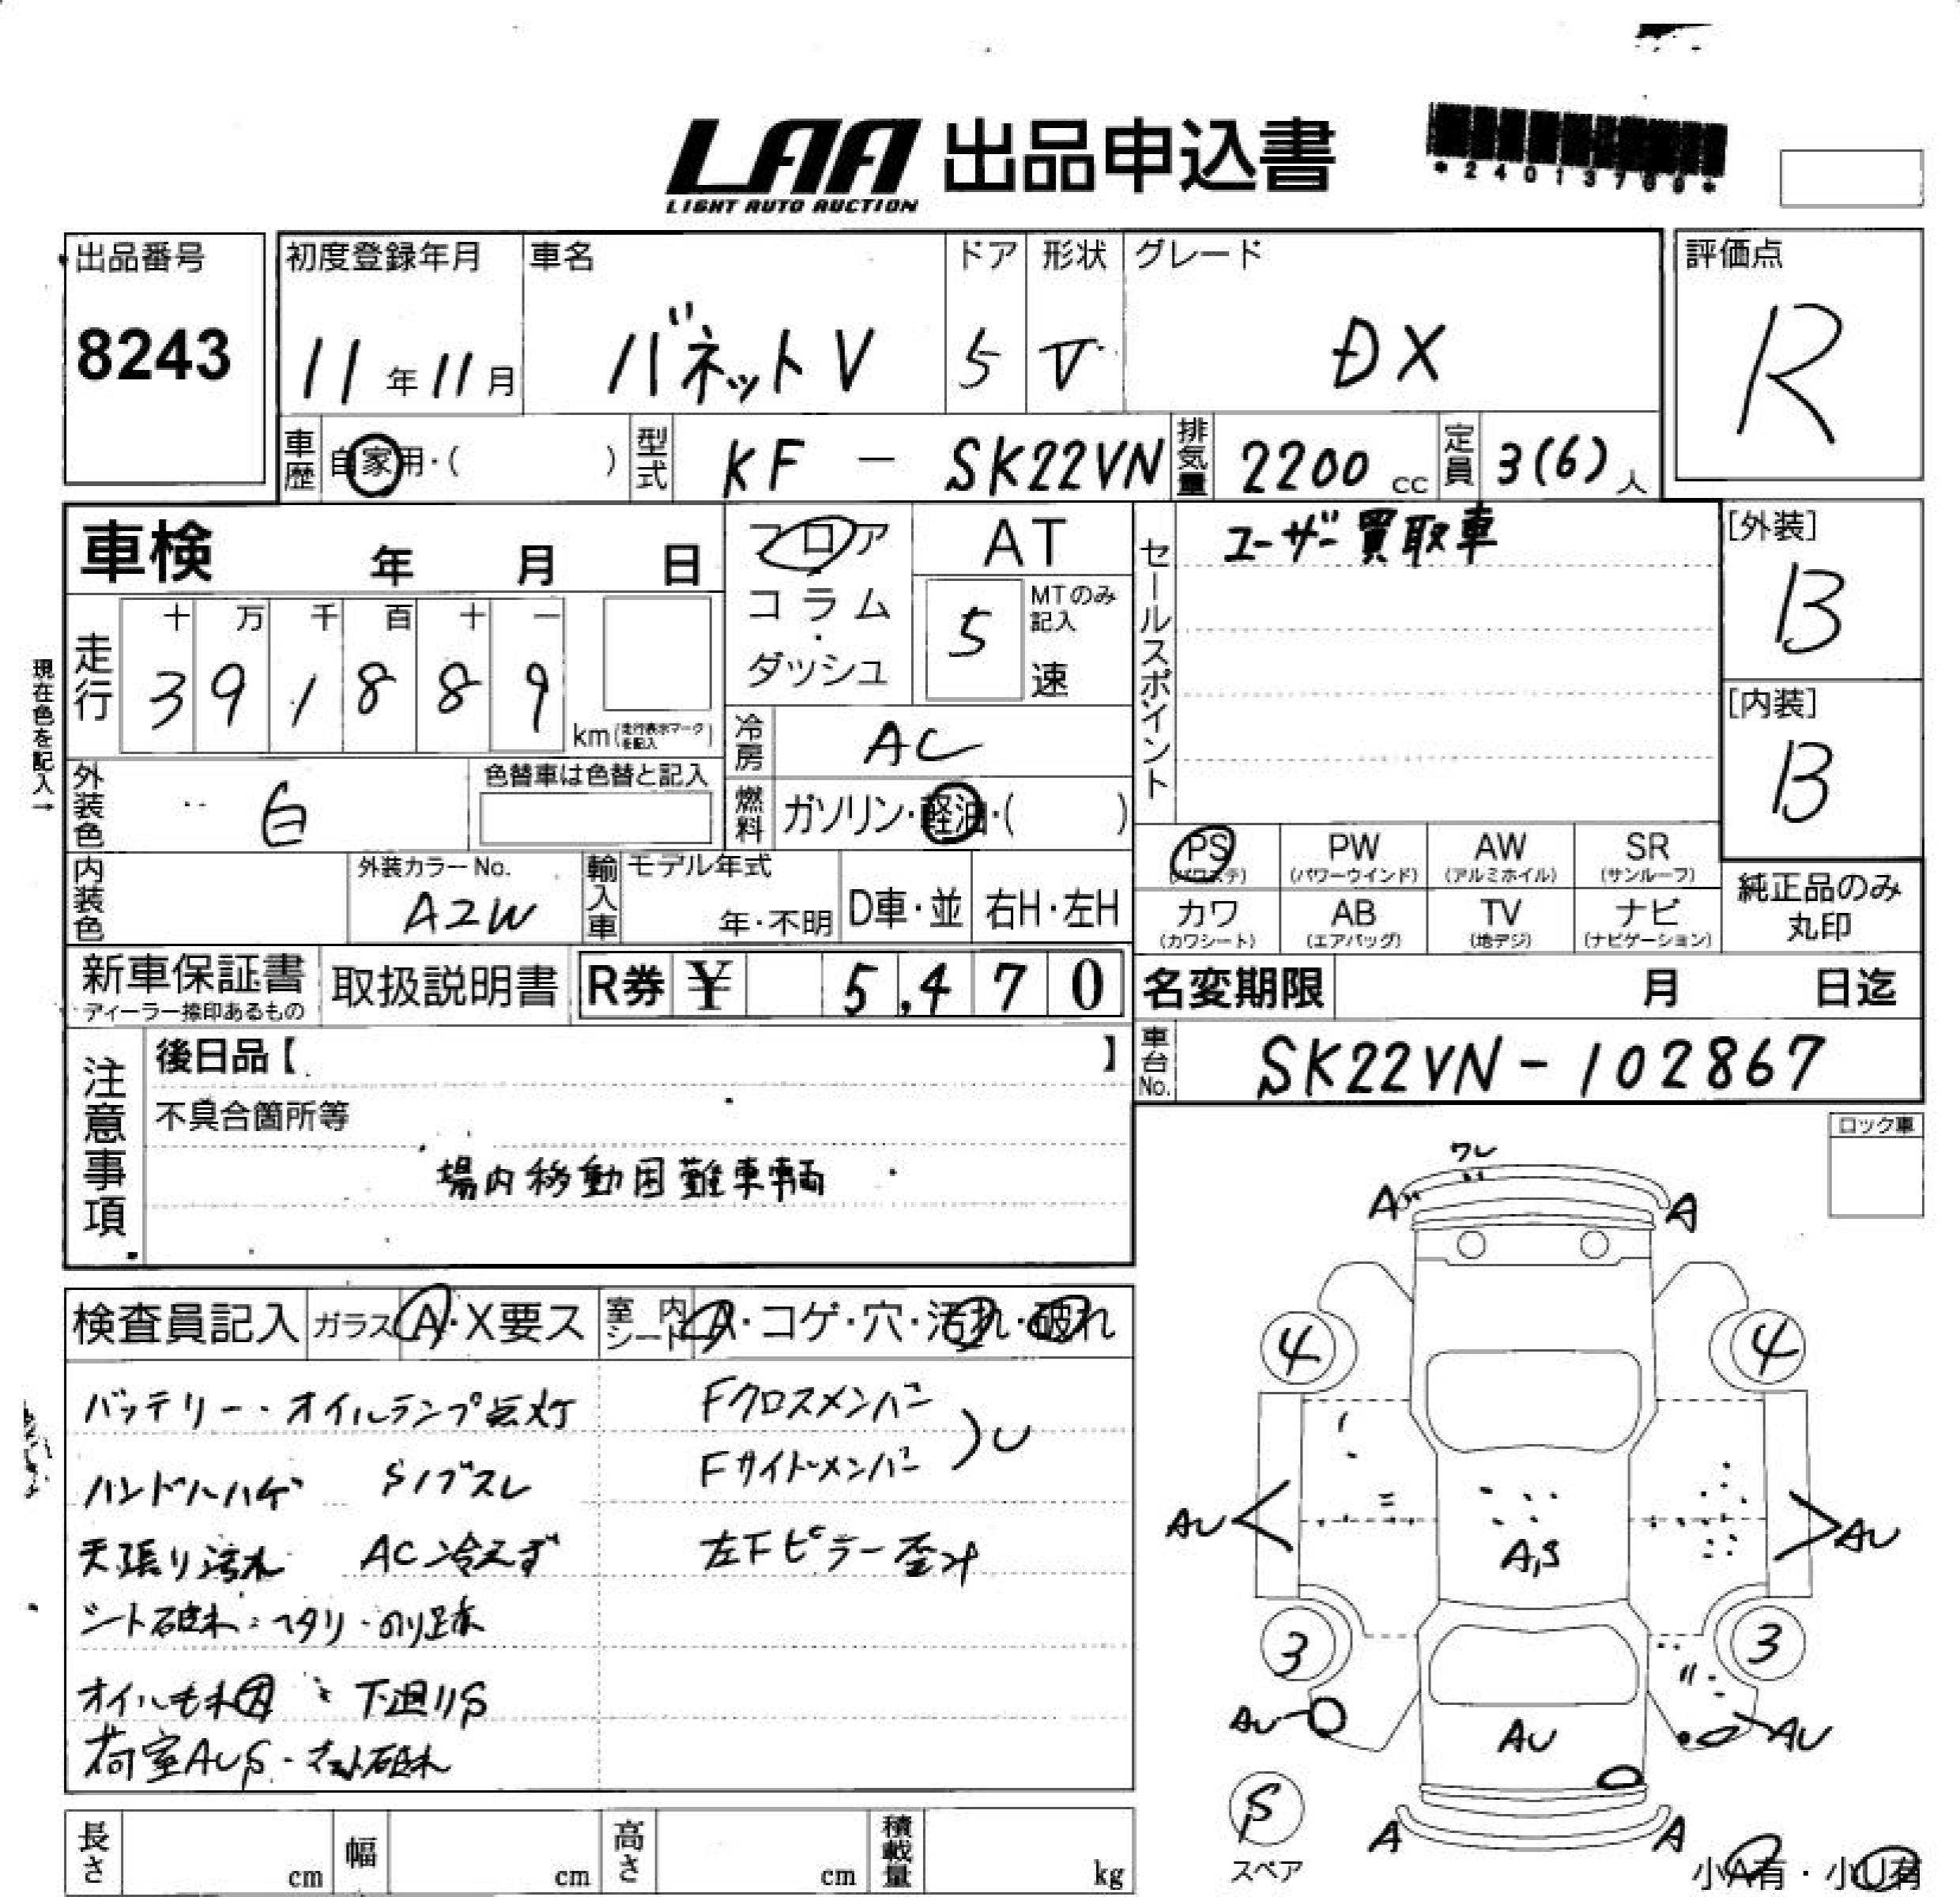 LAA 出品申込書
LIGHT AUTO AUCTION
出品番号
8243
初度登録年月
11年11月
車名
バネットV
ドア
5
形状
V
グレード
DX
評価点
R
車歴
自家用・( )
型式
KF - SK22VN
排気量
2200 cc
定員
3(6)人
車検 年 月 日
フロア
コラム
・
ダッシュ
AT
5
MTのみ
記入
速
セールスポイント
ユーザー買取車
[外装]
B
[内装]
B
現在色を記入→
走行
十 万 千 百 十 一
3 9 1 8 8 9
km(走行表示マークを記入)
冷房
AC
燃料
ガソリン・軽油・( )
外装色
白
色替車は色替と記入
PS
(パワステ)
PW
(パワーウインド)
AW
(アルミホイル)
SR
(サンルーフ)
カワ
(カワシート)
AB
(エアバッグ)
TV
(地デジ)
ナビ
(ナビゲーション)
純正品のみ
丸印
内装色
外装カラーNo.
A2W
輸入車
モデル年式
年・不明
D車・並
右H・左H
新車保証書
ディーラー捺印あるもの
取扱説明書
R券 ¥ 5,470
名変期限 月 日迄
車台No.
SK22VN-102867
注意事項
後日品【 】
不具合箇所等
場内移動困難車輌
ロック車
検査員記入
ガラス A・X要ス
室内シート A・コゲ・穴・汚れ・破れ
バッテリー・オイルランプ点灯
ハンドルハゲ Sノブスレ
天張り汚れ AC冷えず
シート破れ・ヘタリ・のり跡
オイルもれ大 下廻りS
荷室AUS
Fクロスメンバー
Fサイドメンバー
)U
左Fピラー歪み
ワレ
A
A
4
4
AU
A,S
AU
3
3
AU
AU
AU
S
スペア
A
A
小A有・小U有
長さ cm
幅 cm
高さ cm
積載量 kg